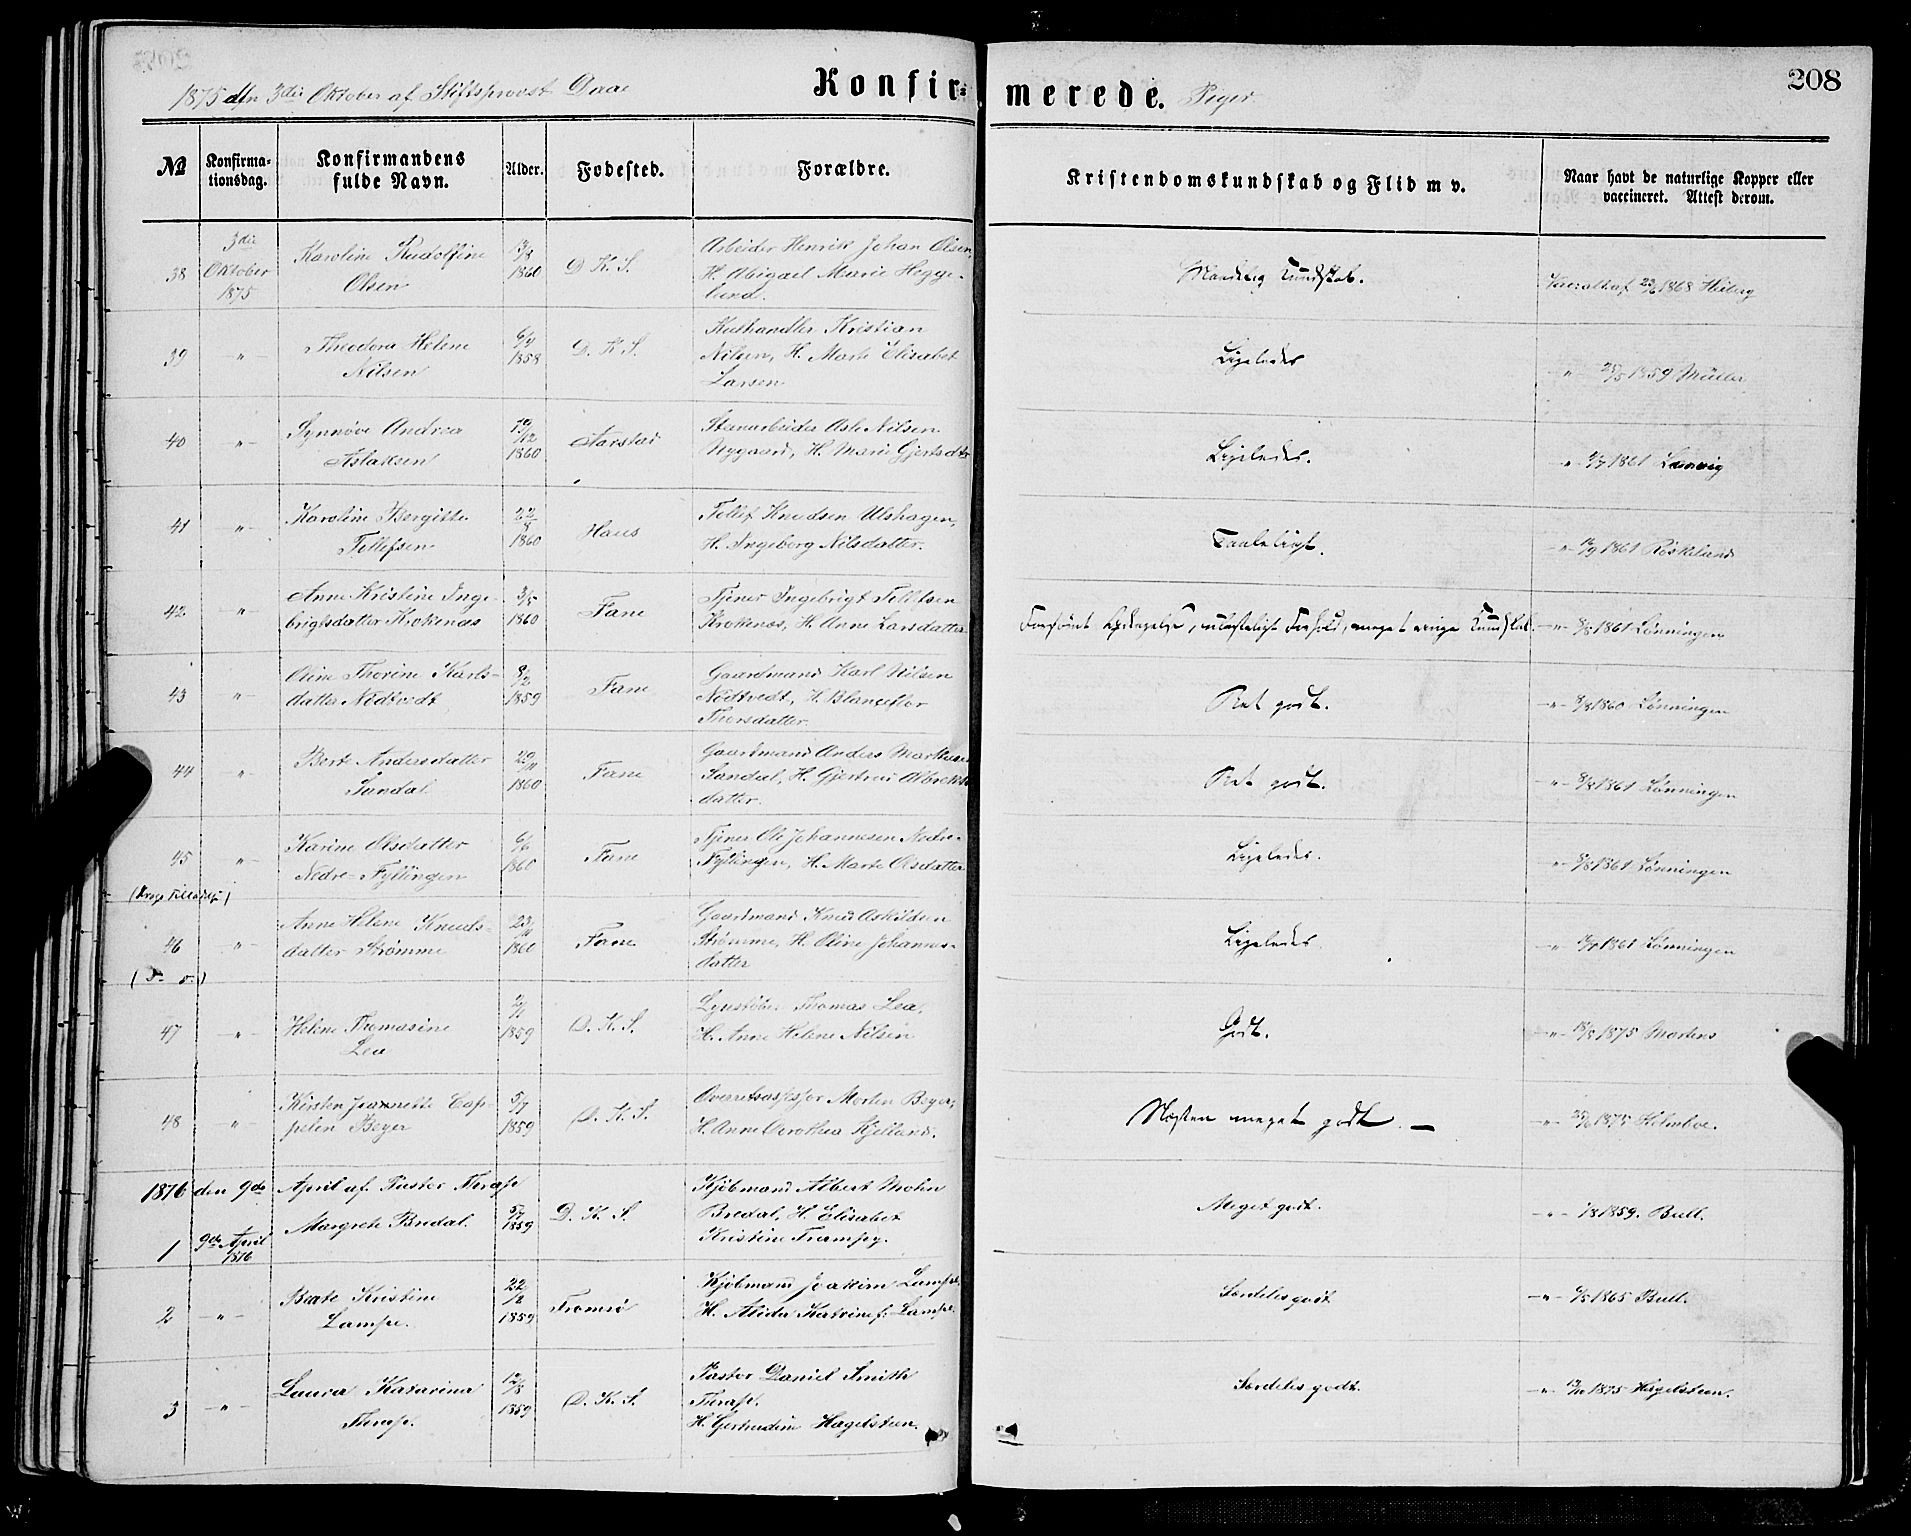 208
1875 den 3die Oktober af Stiftsprovst Daae
Konfir-
merede. Piger
№
Konfirma-
tionsdag.
Konfirmandens
fulde Navn.
Alder.
Fødested.
Forældre.
Kristendomskundskab og Flid m v.
Naar havt de naturlige Kopper eller
vaccineret. Attest derom.
38
3die
Oktober
1875
Karoline Rudolfine
Olsen
1860
D. K. S.
Arbeider Henrik Johan Olsen,
H. Abigael Marie Hegge-
lund.
Maadelig Kundskab.
1868 Heiberg
39
"
Theodora Helene
Nilsen
6/4
1858
D. K. S.
Kulhandler Kristian
Nilsen, H. Marte Elisabet
Larsen
Ligeledes
" 25/5 1859 Müller
40
"
Synnøve Andrea
Aslaksen
19/12
1860
Aarstad
Stenarbeider Asle Nilsen
Nygaard, H. Mari Gjertsdtr
Ligeledes.
" 1861 Lamvig
41
"
Karoline Bergitte
Tellefsen
22/8
1860
Haus
Tellef Knudsen Ulshagen,
H. Ingeborg Nilsdatter.
Taaleligt.
" 12/9 1861 Røskeland
42
"
Anne Kristine Inge-
brigtsdatter Krokenæs
3/5
1860
Fane
Tjener Ingebrigt Tellefsen
Krokenæs, H. Anne Larsdatter
Forsømt meget ringe Kundskab.
" 8/8 1861 Lønningen
43
"
Oline Thorine Karls-
datter Nedtvedt
8/2
1859
Fane
Gaardmand Karl Nilsen
Nedtvedt, H. Blanceflor
Thorsdatter.
Ret godt.
" 8/8 1860 Lønningen
44
"
Berte Andersdatter
Sandal.
29/11
1860
Fane
Gaardmand Anders Markusen
Sandal, H. Gjertrud Albrekts-
datter.
Ret godt.
" 8/8 1861 Lønningen
45
"
Karine Olsdatter
Nedre-Fyllingen
6/6
1860
Fane
Tjener Ole Johannesen Nedre-
Fyllingen, H. Marte Olsdatter
Ligeledes.
" 8/8 1861 Lønningen
46
"
Anne Helene Knuds-
datter Strømme
23/11
1860
Fane
Gaardmand Knud Askildsen
Strømme, H. Oline Johannes-
datter
Ligeledes.
" 1861 Lønningen
47
"
Helene Thomasine
Lea
1859
D. K. S.
Lysstøber Thomas Lea,
H. Anne Helene Nilsen
Godt.
" 18/8 1875 Martens
48
"
Kirsten Jeannette Cap-
pelen Beyer
5/7
1859
D. K. S.
Overretsassessor Morten Beyer,
H. Anne Dorothea Kjelland.
Næsten meget godt. —
" 25/6 1875 Holmboe.
1876 den 9de April af Pastor Thrap
1
9de April
1876
Margrete Bredal.
5/7
1859
D. K. S.
Kjøbmand Albert Mohn
Bredal, H. Elisabet
Kristine Frampy.
Meget godt.
" 1859. Bull.
2
"
Berte Kristine
Lampe.
22/8
1859
Tromsø
Kjøbmand Joakim Lampe,
H. Alida Katrine f. Lampe.
Særdeles godt
" 1865 Bull.
3
"
Laura Katarina
Thrap.
12/8
1859
D. K. S.
Pastor Daniel Smith
Thrap.
H. Gertrudine Hagelsteen.
Særdeles godt.
" 1875 Hagelsteen.